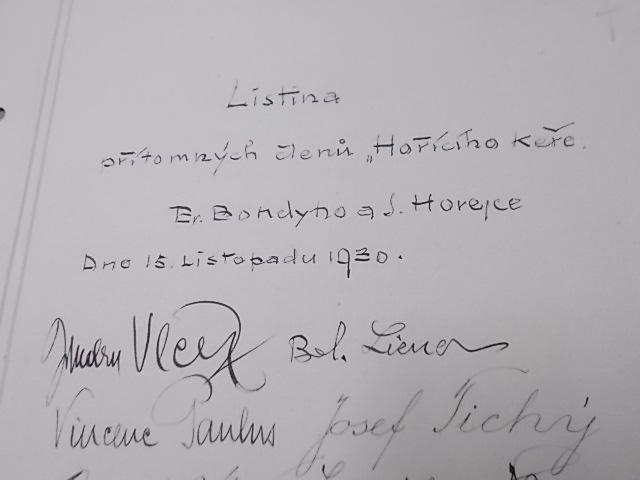 Listina
přítomných členů „Hořícího keře.
Er. Bondyho a J. Horejce
Dne 15. Listopadu 1930.
Vlček Bol.
Vincenc Paulus Josef Tichý